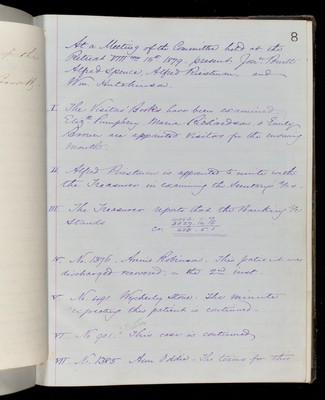 8
At a Meeting of the Committee held at the
Retreat VIII mo 18th 1879 present Jon. Thrett
Alfred Spence, Alfred Priestman and
Wm. Hutchinson.
I. The Visitors' Books have been examined
Elizth. Pumphrey Maria Richardson & Emily
are appointed Visitors for the ensuing
month.
II Alfred Priestman is appointed to unite with
the Treasurer in examining the Sundry
III The Treasurer reports that the Banking
Stands
IV No. 1376. Annie Robinson. This patient was
discharged recovered on the 2nd inst.
V No. 491 Wycherly Stone. The minute
respecting this patient is continued.
VI No 901. This case is continued.
VII No. 1385 Ann Oddie. The terms for this
of the